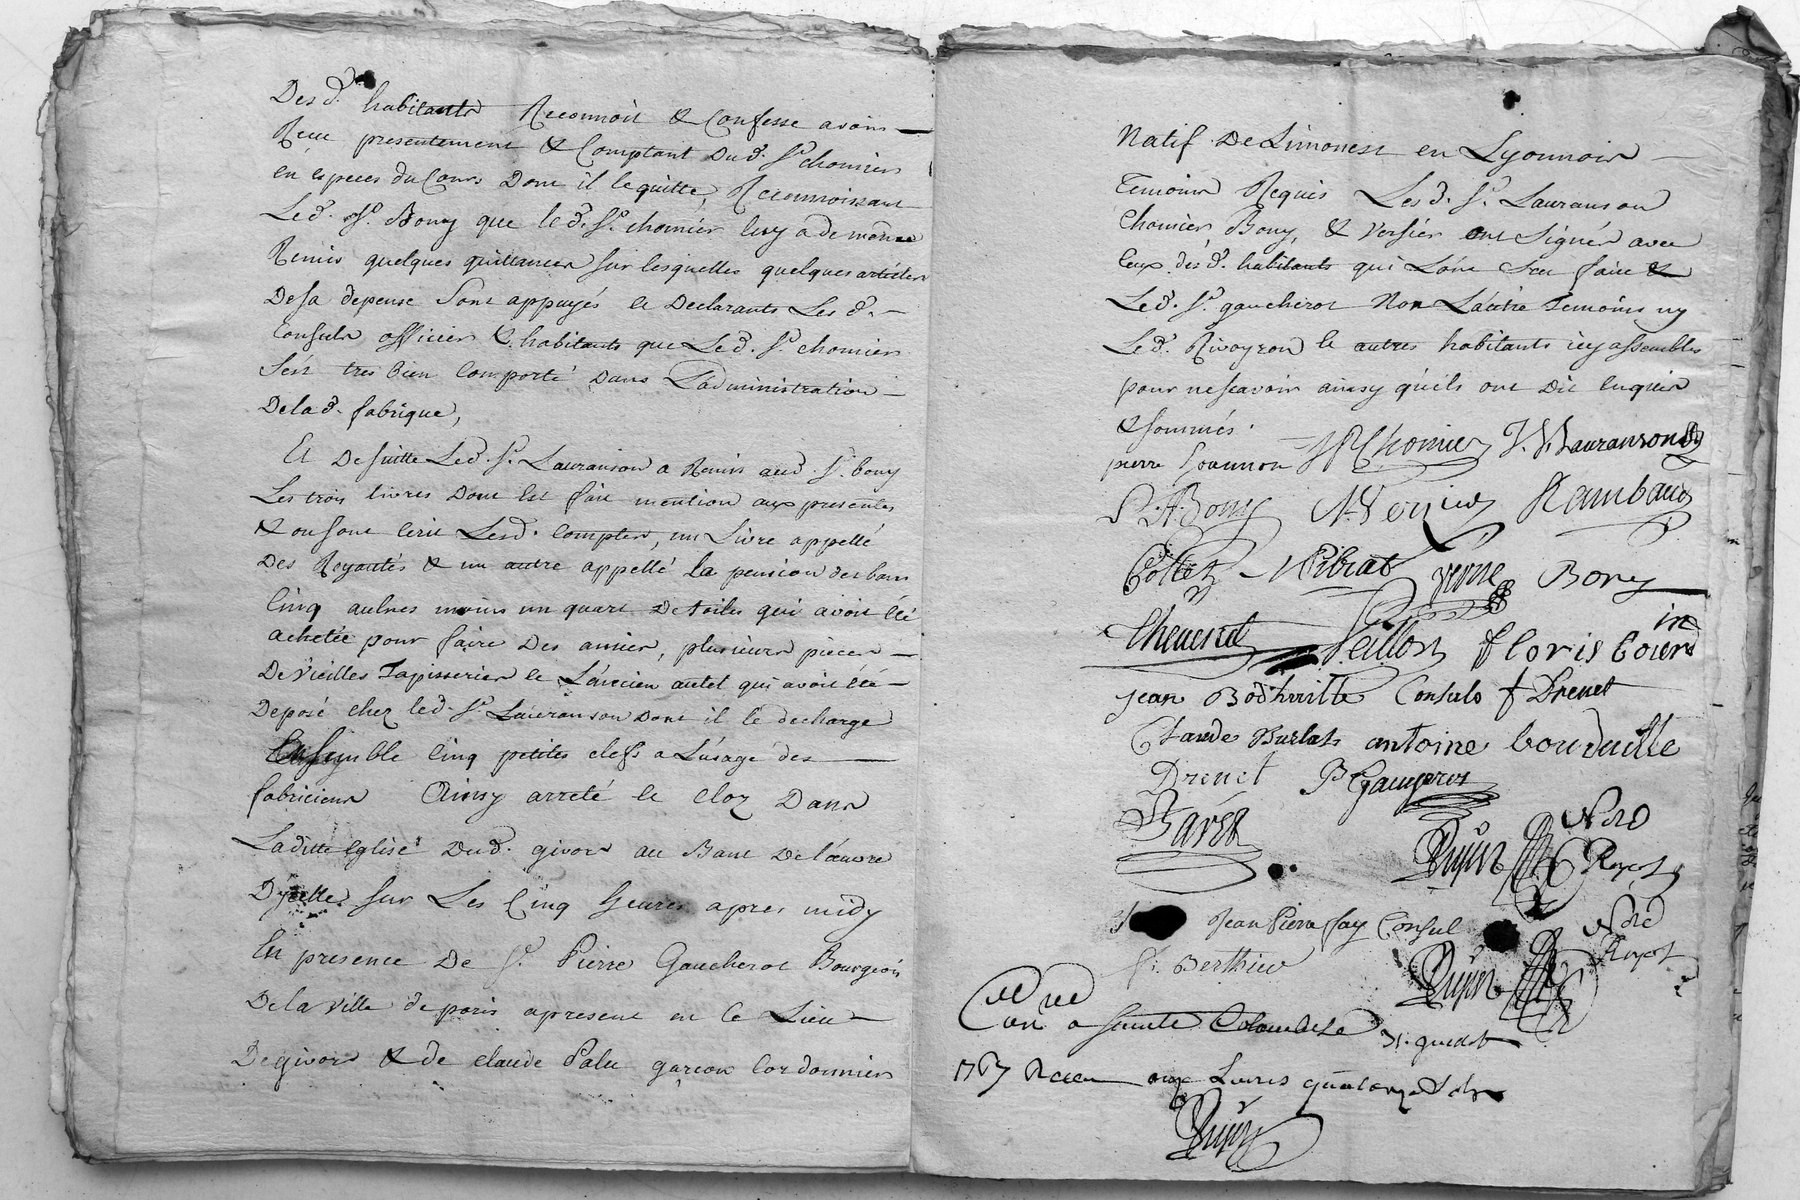 Des d. habitants Reconnoit & Confesse avoir
Reçu presentement & Comptant Dud. Sr. chomier
en especes du Cours Dont il le quitte, Reconnoissant
Led. Sr. Bony que led. Sr. chomier luy a de meme
Remis quelques quittances sur lesquelles quelques articles
De sa depense Sont appuyés et Declarants Les d.
Consuls officiers & habitants que Led. Sr. chomier
s'est tres bien Comporté Dans L'administration
De lad. fabrique,
Et De suitte Led. Sr. Lauranson a Remis aud. Sr. bony
Les trois livres Dont Est fait mention aux presentes
& ou sont Ecrit Lesd. Comptes, un Livre appellé
Des Royautés & un autre appellé la pension des bans
Cinq aulnes moins un quart De toiles qui avoit été
achetée pour faire Des amies, plusieurs pieces
De Vieilles Tapisseries et L'ancien autel qui avoit été
Deposé chez led. Sr. Lauranson Dont il le decharge
Ensemble Cinq petites clefs a L'usage des
fabriciens Ainsy arreté et Cloz Dans
Laditte Eglise Dud. givors au Banc De l'œuvre
D'ycelles sur Les Cinq heures apres midy
En presence De Sr. Pierre Gaucherot Bourgeois
De la Ville de paris apresent en Ce Lieu
De givors & de Claude Palu garçon Cordonnier
Natif De Limonest en Lyonnois
Temoins Requis Lesd. Sr. Lauranson
Chomier Bony, & Versier ont Signés avec
Ceux des d. habitants qui L'ont Sçu faire &
Led. Sr. gaucherot Non L'autre Temoins ny
Led. Rivoyron et autres habitants icy assemblés
pour ne scavoir ainsy qu'ils ont Dit Enquis
& sommés.
pierre Chomier Lauranson
Bony Versier Rambaud
Pibrat Verne Bony
Thevenet Peillon floris
jean Consuls f Drenet
Claude antoine
Drenet
Nre
Royal
Jean Piere fay Consul Nre
Berthieu Royal
a Sainte Colombe Le
Livres quatorze